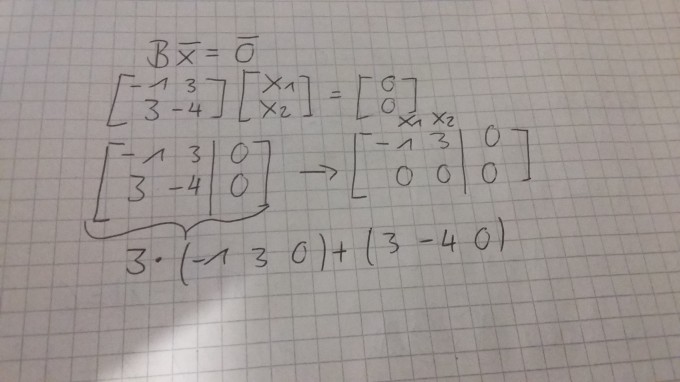 B x̄ = ō
[-1 3 3 -4] [x1 x2] = [0 0]
x1 x2
[-1 3 | 0 3 -4 | 0] → [-1 3 | 0 0 0 | 0]
3·(-1 3 0)+(3 -4 0)